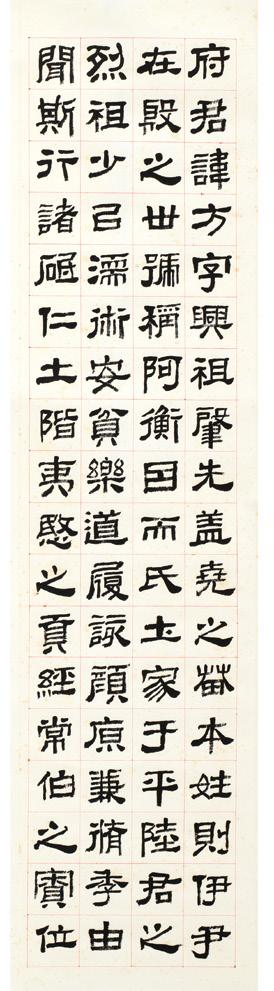 府君諱方字興祖肇先盖堯之苗本姓則伊尹
在殷之世號稱阿衡因而氏土家于平陸君之
烈祖少以濡術安貧樂道履該顏原兼脩季由
聞斯行諸砥仁土階夷愍之貢經常伯之賓位